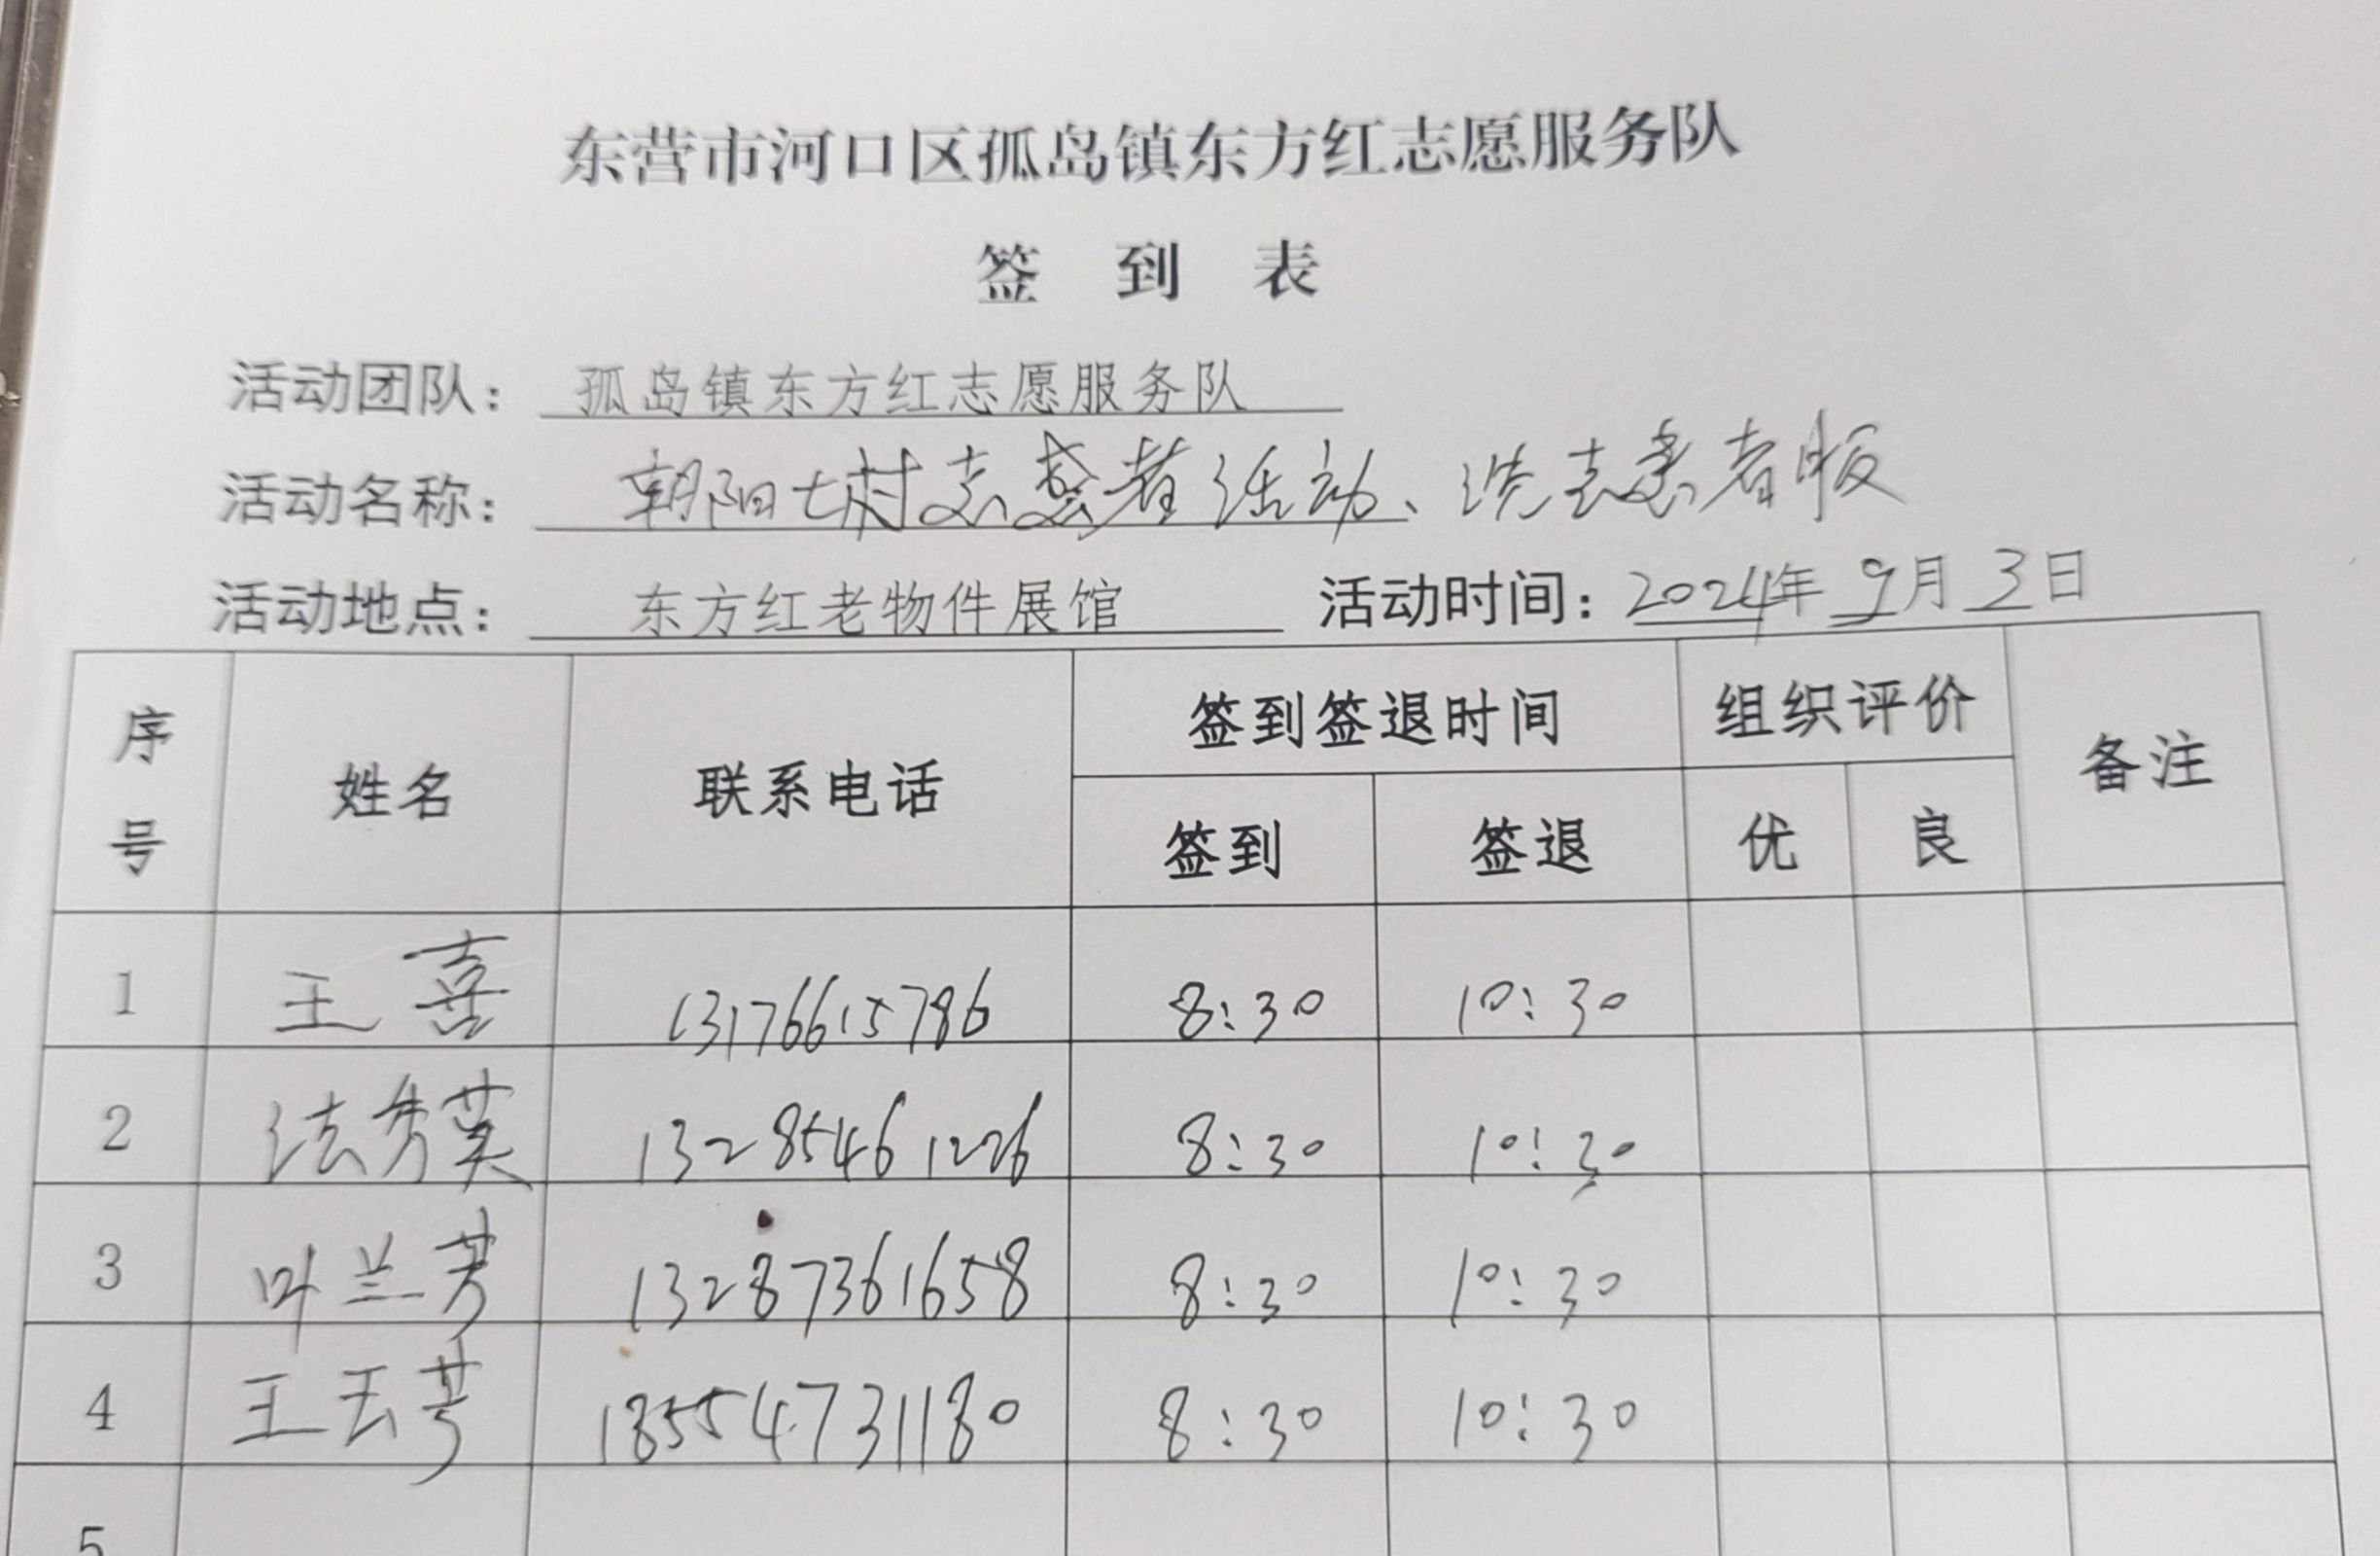 东营市河口区孤岛镇东方红志愿服务队
签 到 表
活动团队： 孤岛镇东方红志愿服务队
活动名称： 朝阳七村志愿者活动、洗志愿者服
活动地点： 东方红老物件展馆 活动时间：2024年 9月 3日
序号 姓名 联系电话 签到签退时间 组织评价 备注
签到 签退 优 良
1 王喜 13176615786 8:30 10:30
2 法秀英 13285461226 8:30 10:30
3 叶兰芳 13287361658 8:30 10:30
4 王云芳 18554731180 8:30 10:30
5